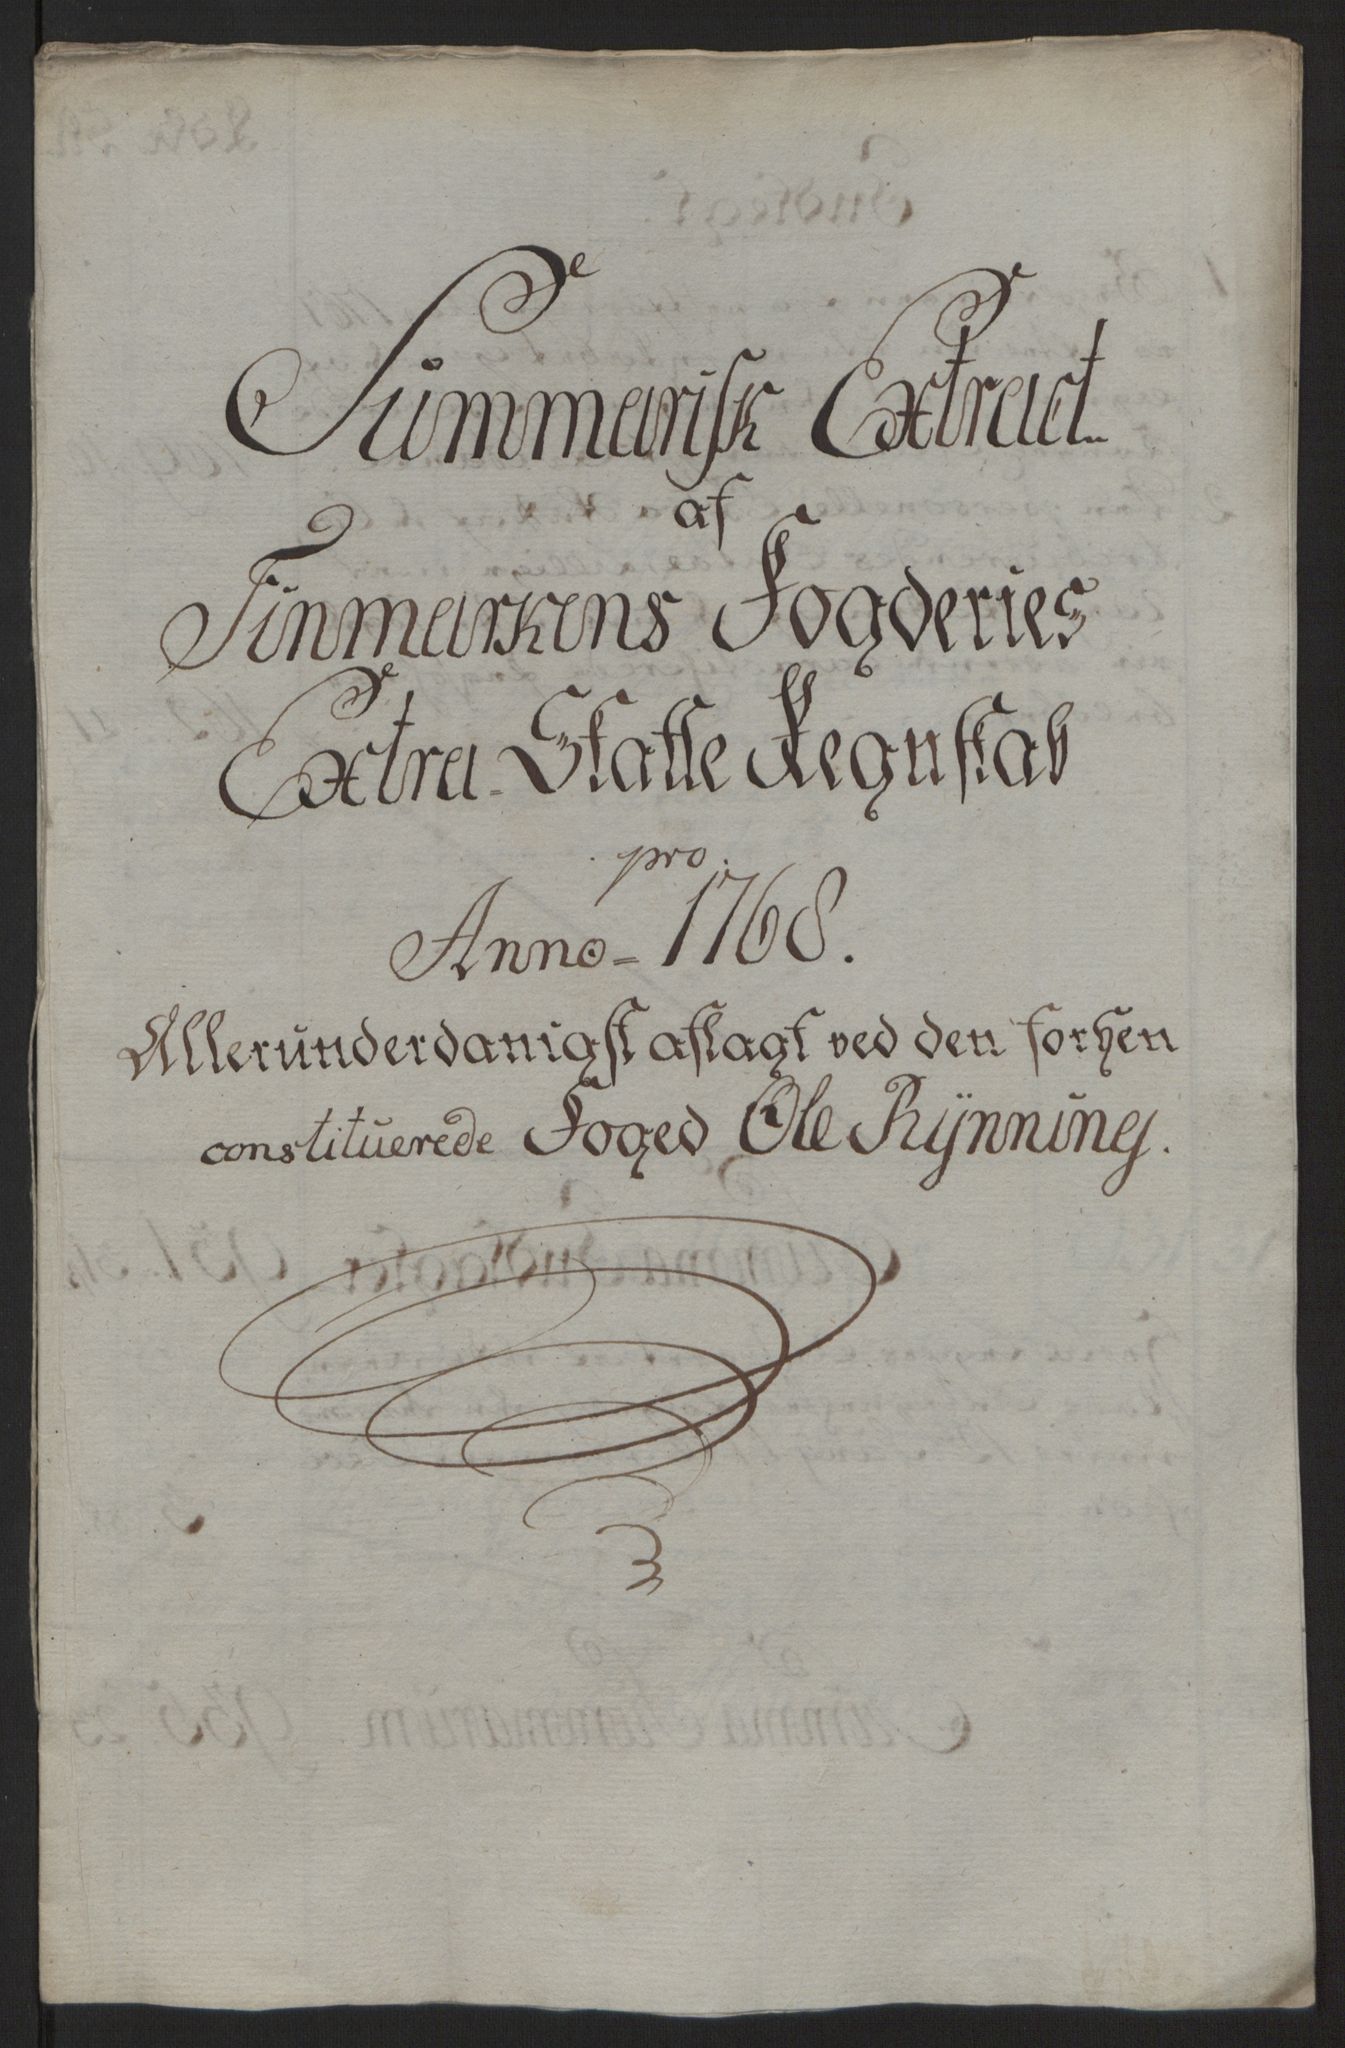 Summarisk Extract
af
Finmarkens Fogderies
Extra-Skatte Regnskab
pro
Anno = 1768.
Allerunderdanigst aflagt ved den forhen
constituerede Foged Ole Rÿnning.